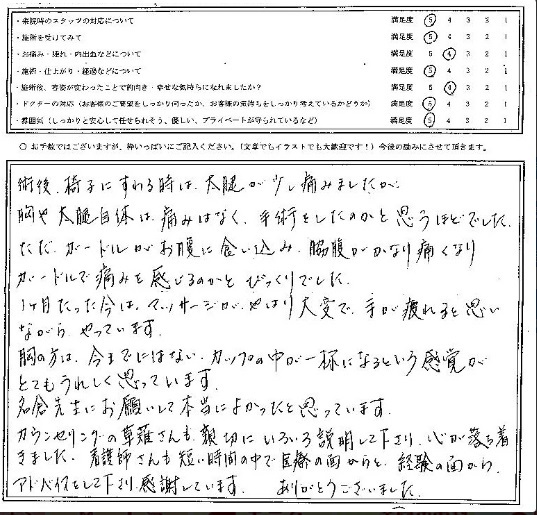 ・来院時のスタッフの対応について 満足度 5 4 3 2 1
・施術を受けてみて 満足度 5 4 3 2 1
・お痛み・腫れ・内出血などについて 満足度 5 4 3 2 1
・施術・仕上がり・経過などについて 満足度 5 4 3 2 1
・施術後、容姿が変わったことで前向き・幸せな気持ちになれましたか? 満足度 5 4 3 2 1
・ドクターの対応(お客様のご要望をしっかり伺ったか、お客様の気持ちをしっかり考えているかどうか) 満足度 5 4 3 2 1
・雰囲気(しっかりと安心して任せられそう、優しい、プライベートが守られているなど) 満足度 5 4 3 2 1
○ お手数ではございますが、枠いっぱいにご記入ください。(文章でもイラストでも大歓迎です!)今後の励みにさせて頂きます。
術後、椅子にすわる時は、太腿が少し痛みましたが
胸や太腿自体は、痛みはなく、手術をしたのかと思うほどでした。
ただ、ガードルがお腹に食い込み、脇腹がかなり痛くなり
ガードルで痛みを感じるのかとびっくりでした。
1ヶ月たった今は、マッサージが、やはり大変で、手が疲れると思い
ながら、やっています。
胸の方は、今までにはない、カップの中が一杯になるという感覚が
とてもうれしく思っています。
名倉先生にお願いして本当によかったと思っています。
カウンセリングの草薙さんも、親切にいろいろ説明して下さり、心が落ち着
きました。看護師さんも短い時間の中で医療の面からと、経験の面から、
アドバイスをして下さり、感謝しています。 ありがとうございました。